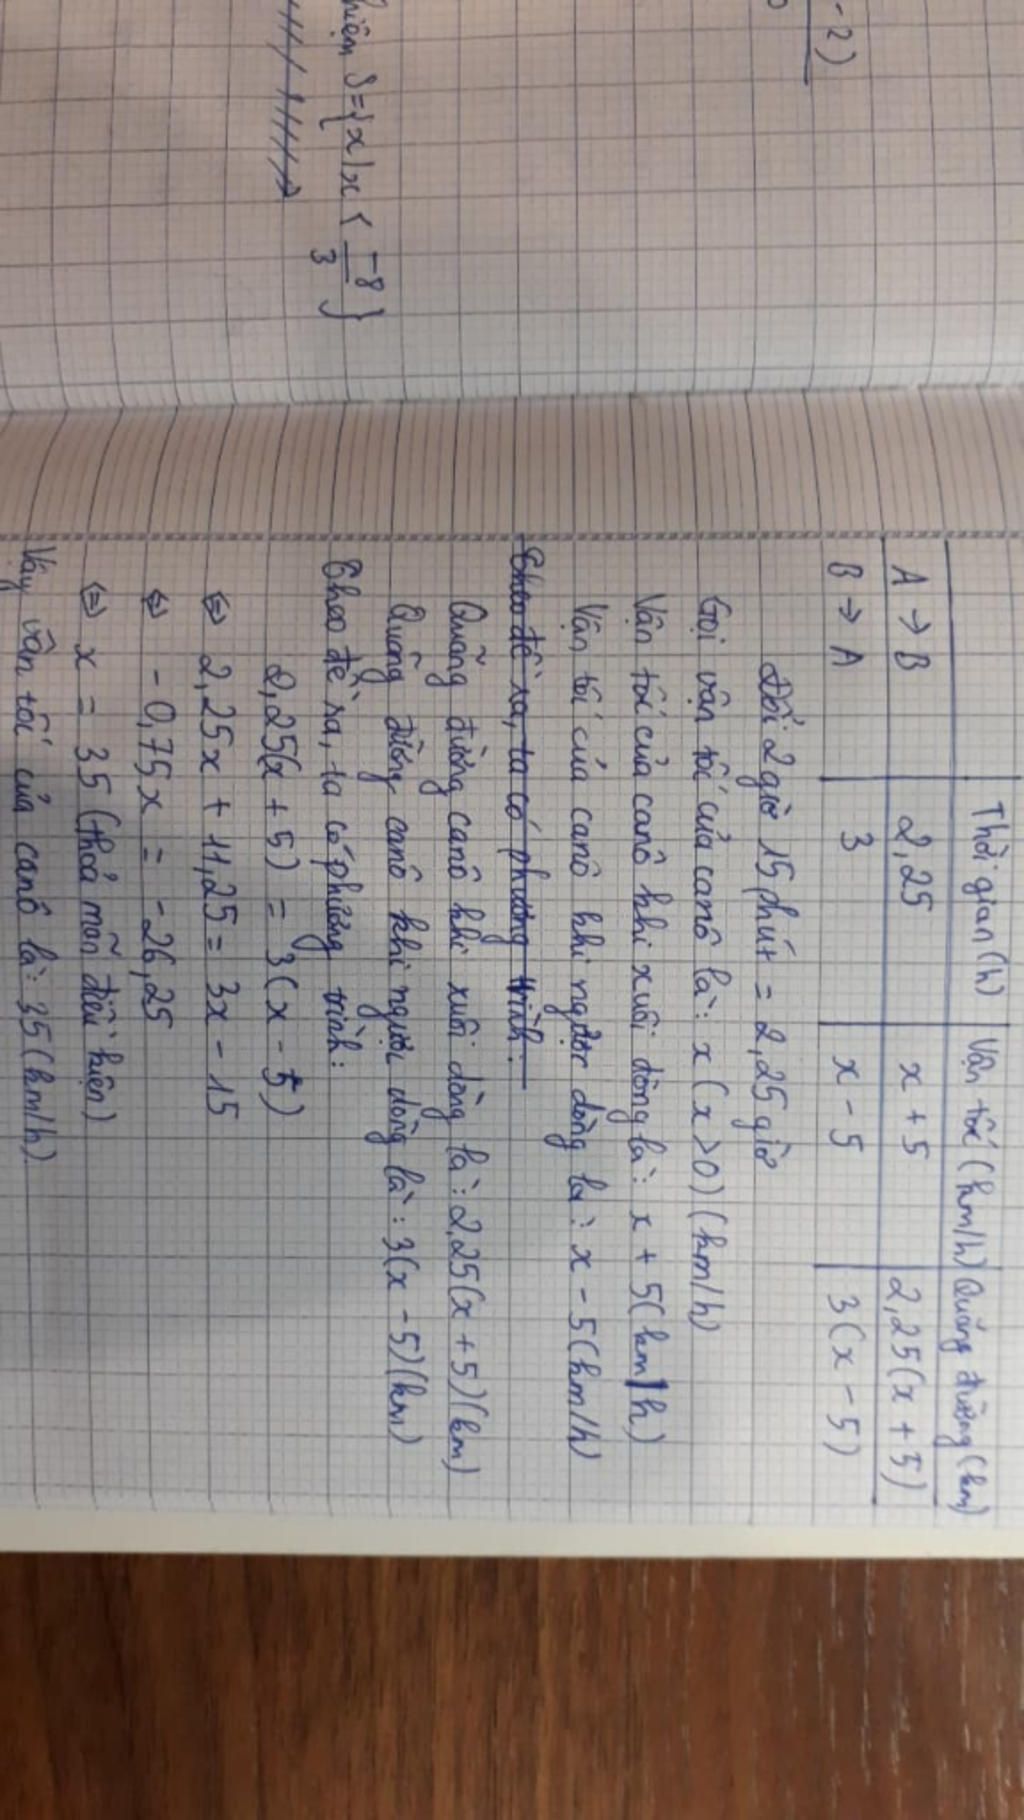 -2)
0
hiệm S={x/x < -8/3}
Thời gian (h) Vận tốc (km/h) Quãng đường (km)
A → B 2,25 x + 5 2,25(x + 5)
B → A 3 x - 5 3(x - 5)
Đổi 2 giờ 15 phút = 2,25 giờ
Gọi vận tốc của canô là: x (x>0) (km/h)
Vận tốc của canô khi xuôi dòng là: x + 5(km/h)
Vận tốc của canô khi ngược dòng là: x - 5(km/h)
Theo đề ra, ta có phương trình:
Quãng đường canô khi xuôi dòng là: 2,25(x + 5)(km)
Quãng đường canô khi ngược dòng là: 3(x - 5)(km)
Theo đề ra, ta có phương trình:
2,25(x + 5) = 3(x - 5)
⇔ 2,25x + 11,25 = 3x - 15
⇔ - 0,75x = - 26,25
⇔ x = 35 (thoả mãn điều kiện)
Vậy vận tốc của canô là: 35(km/h)